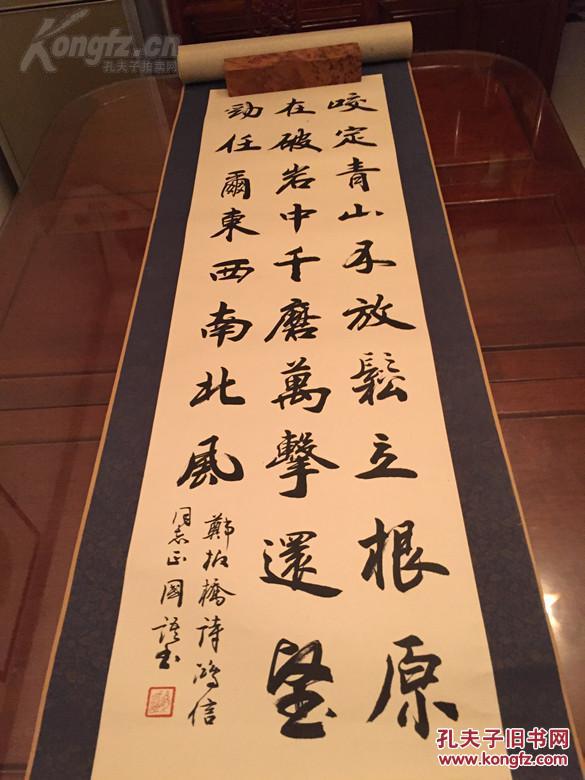 咬定青山不放鬆立根原
在破岩中千磨萬擊還堅
勁任爾東西南北風
鄭板橋詩鴻信
同志正國书
Kongfz.cn
孔夫子拍卖网
孔夫子旧书网
www.kongfz.com